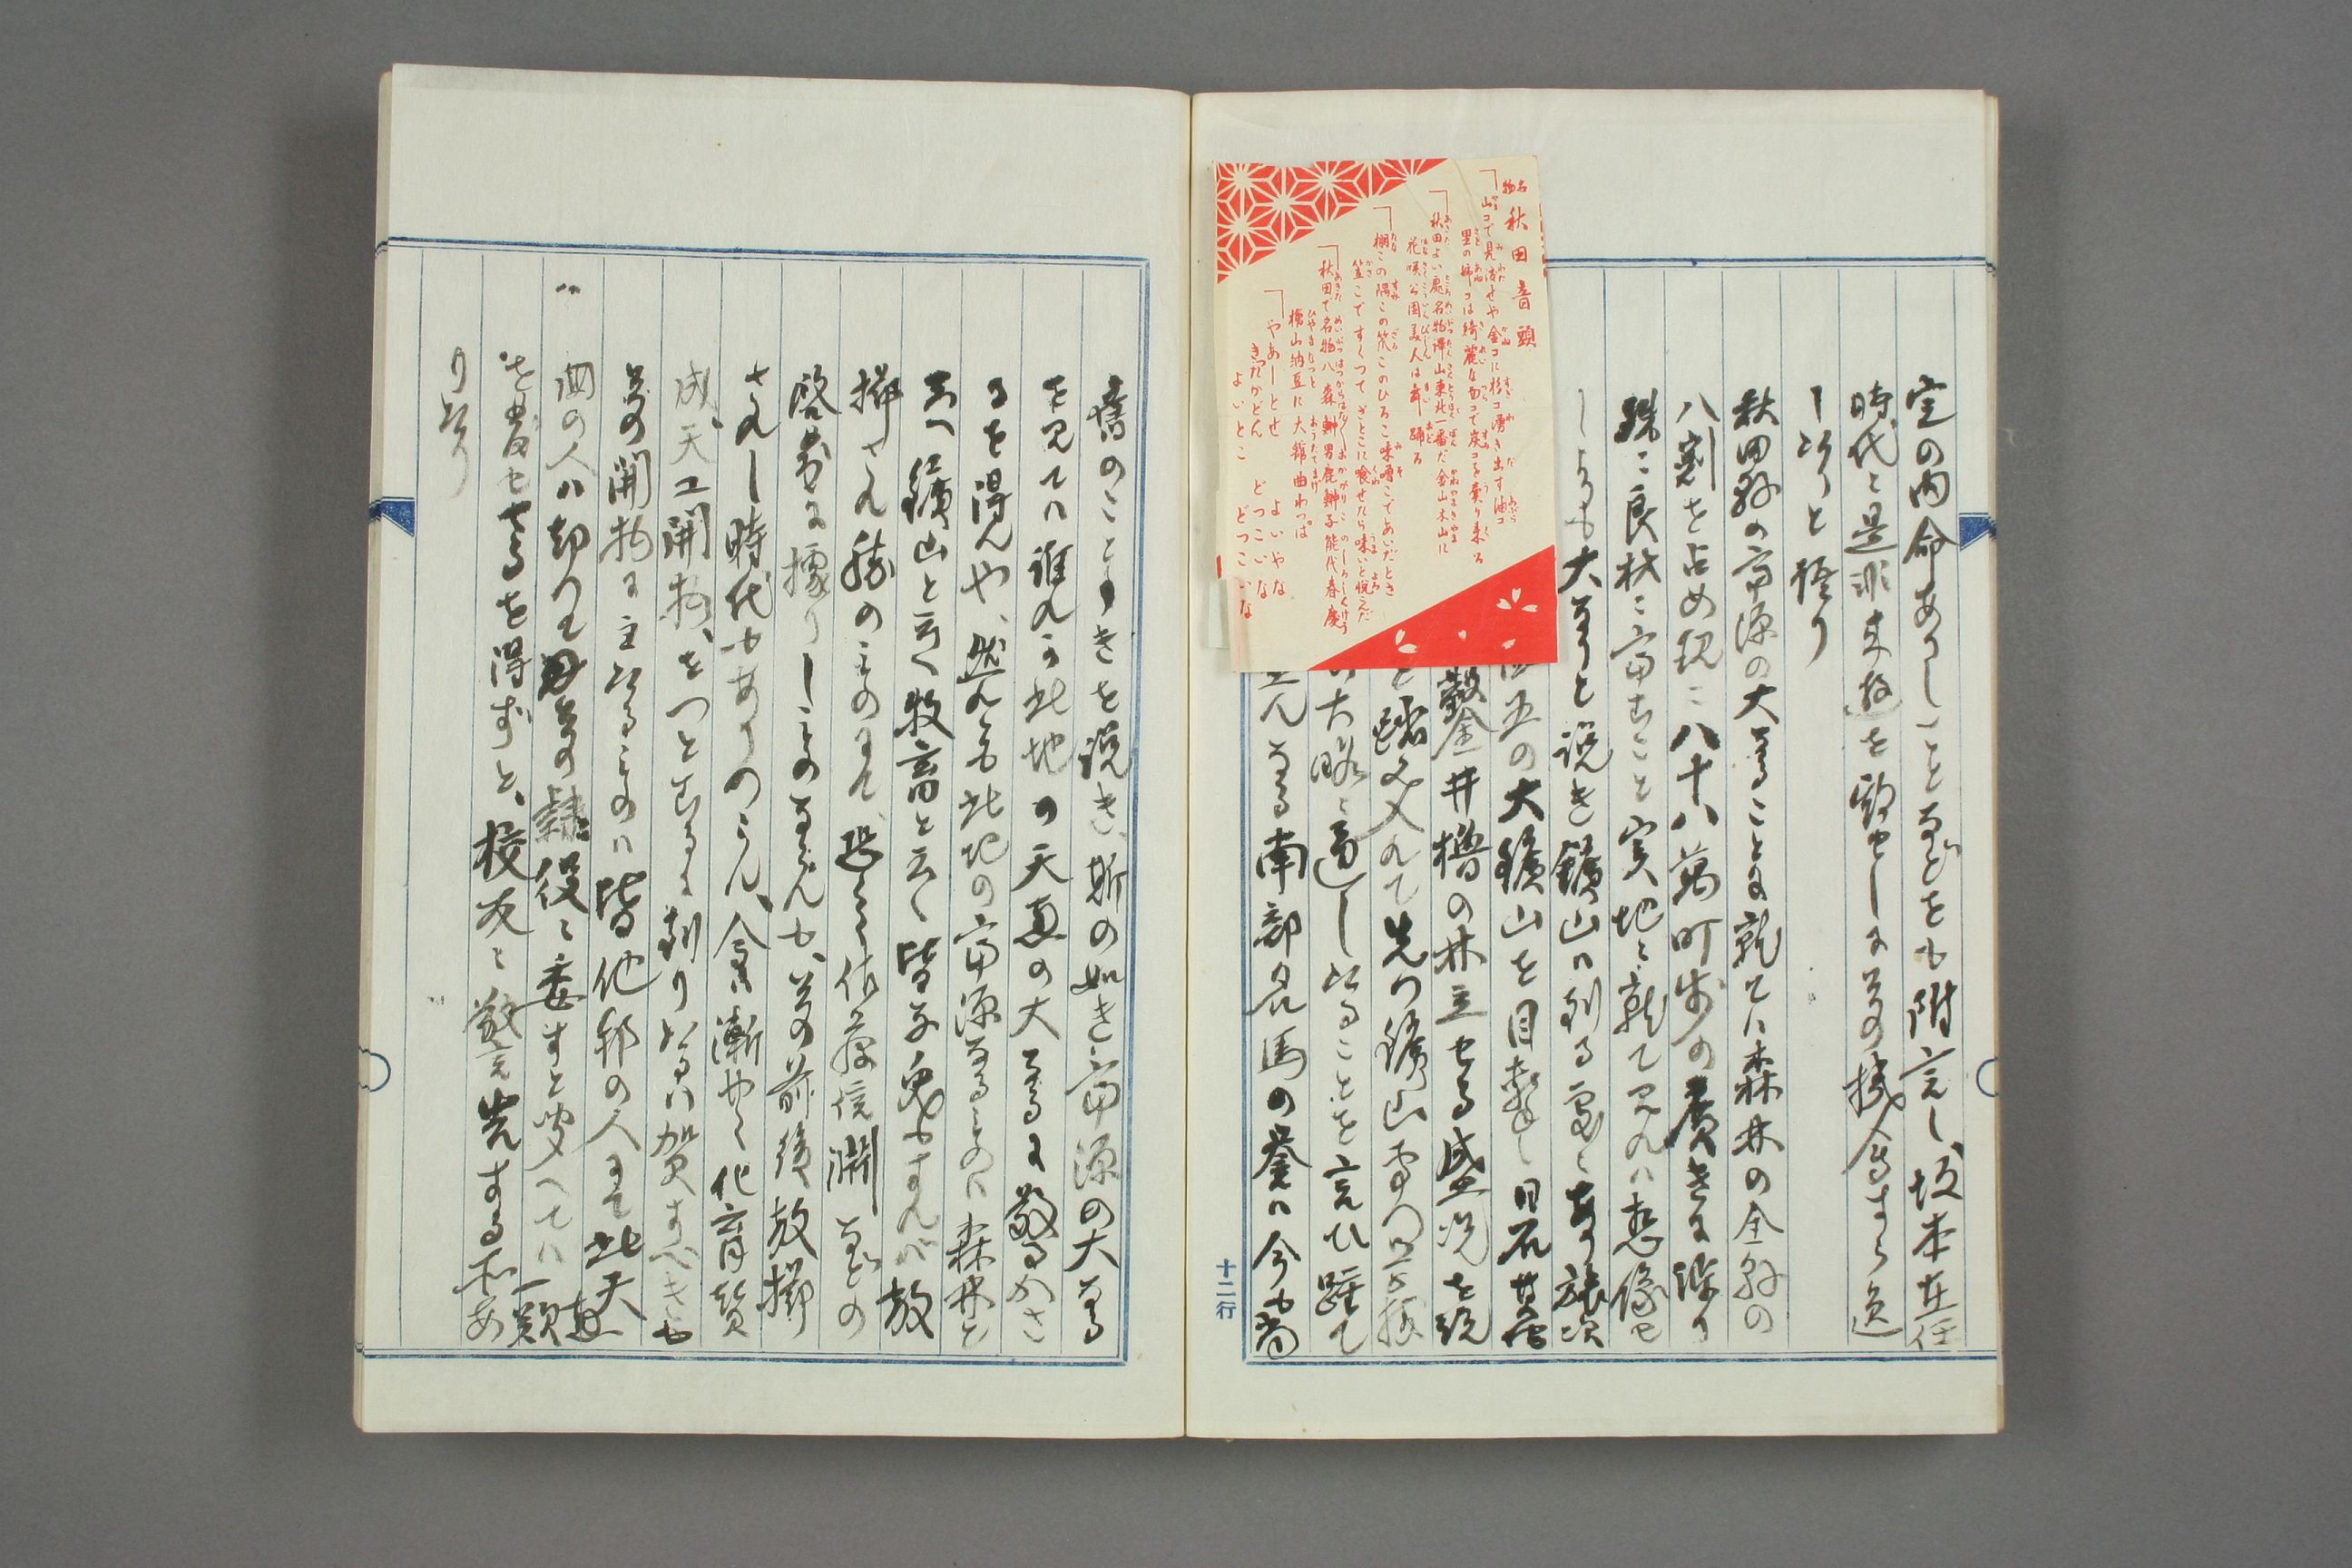 定の内命ありしことなどをも附言し、坂本在任
時代に是非来遊を勧せしに其の機会すら逸
したりと語り
秋田県の富源の大なることに就ては森林の全県の
八割を占め現に八十八萬町歩の廣きに渉り
殊に良材に富むこと実地に就て見れば想像せ
しよりも大なりと説き鑛山に到る處に
五の大鑛山を目撃し日石
鑿井櫓の林立せる盛況を
踏み入れて先つ鑛山専門
大略に通したることを言ひ
なる南部名馬の産は今も尚
名物 秋田音頭
山コで見渡せや金コに杉コ湧き出す油コ
里の姉コは綺麗な面コで炭コを賣り来る
秋田よい處名物澤山東北一番だ金山木山に
花咲く公園美人は舞踊る
棚この隅この笊このひろこ味噌こであいだとき
笠こですくつてぎとこに喰せたら味いと悦んだ
秋田で名物八森鰰男鹿鰰子能代春慶
檜山納豆に大館曲わっぱ
やあーとせ よいやな
きたかどん どつこいな
よいとこ どつこいな
十二行
舊のことゝきを説き、斯の如き富源の大なる
を見ては誰れか此地の天恵の大なるに驚かさ
るを得んや、然れども此地の富源なるものは森林と
云へ鑛山と云へ牧畜と云へ皆な
擲されたるものにて、恐らく佐藤信淵などの
啓蒙に據りしものならんも、其の前後放擲
されし時代もありつらん、今は漸やく化育賛
成、天工開物、をつとむるに到りたるは賀すべきも
其の開物に主たるものは皆他郷の人にて此天恵
国の人は却つて其の隷役に委すと聞へては一顰
を発せざるを得ずと、校友に警告する所あ
りたり